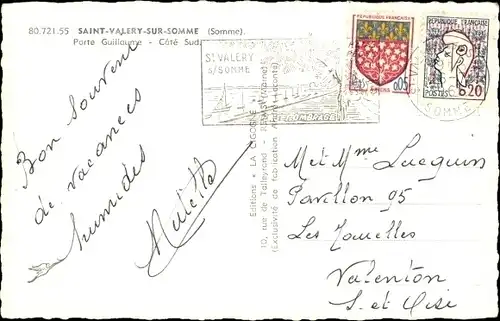 80.721.55 SAINT-VALERY-SUR-SOMME (Somme).
Porte Guillaume - Côté Sud.
ST VALERY
S/SOMME
REPUBLIQUE FRANÇAISE
AMIENS
0,05
REPUBLIQUE FRANÇAISE
POSTES
0,20
SOMME
Bon souvenir
de vacances
humides
Editions « LA CIGOGNE »
10, rue de Talleyrand - REIMS
(Exclusivité de fabrication
M et Mme
Pavillon 95
Les
Valenton
S. et Oise